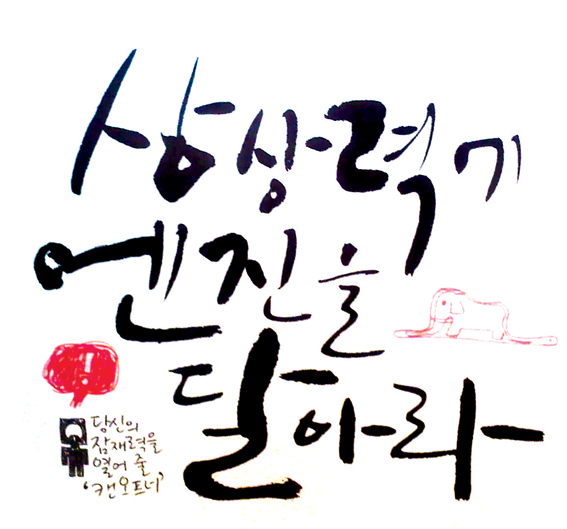 상상력기
엔진을
달아라
당신의
잠재력을
열어 줄
'캔오프너'